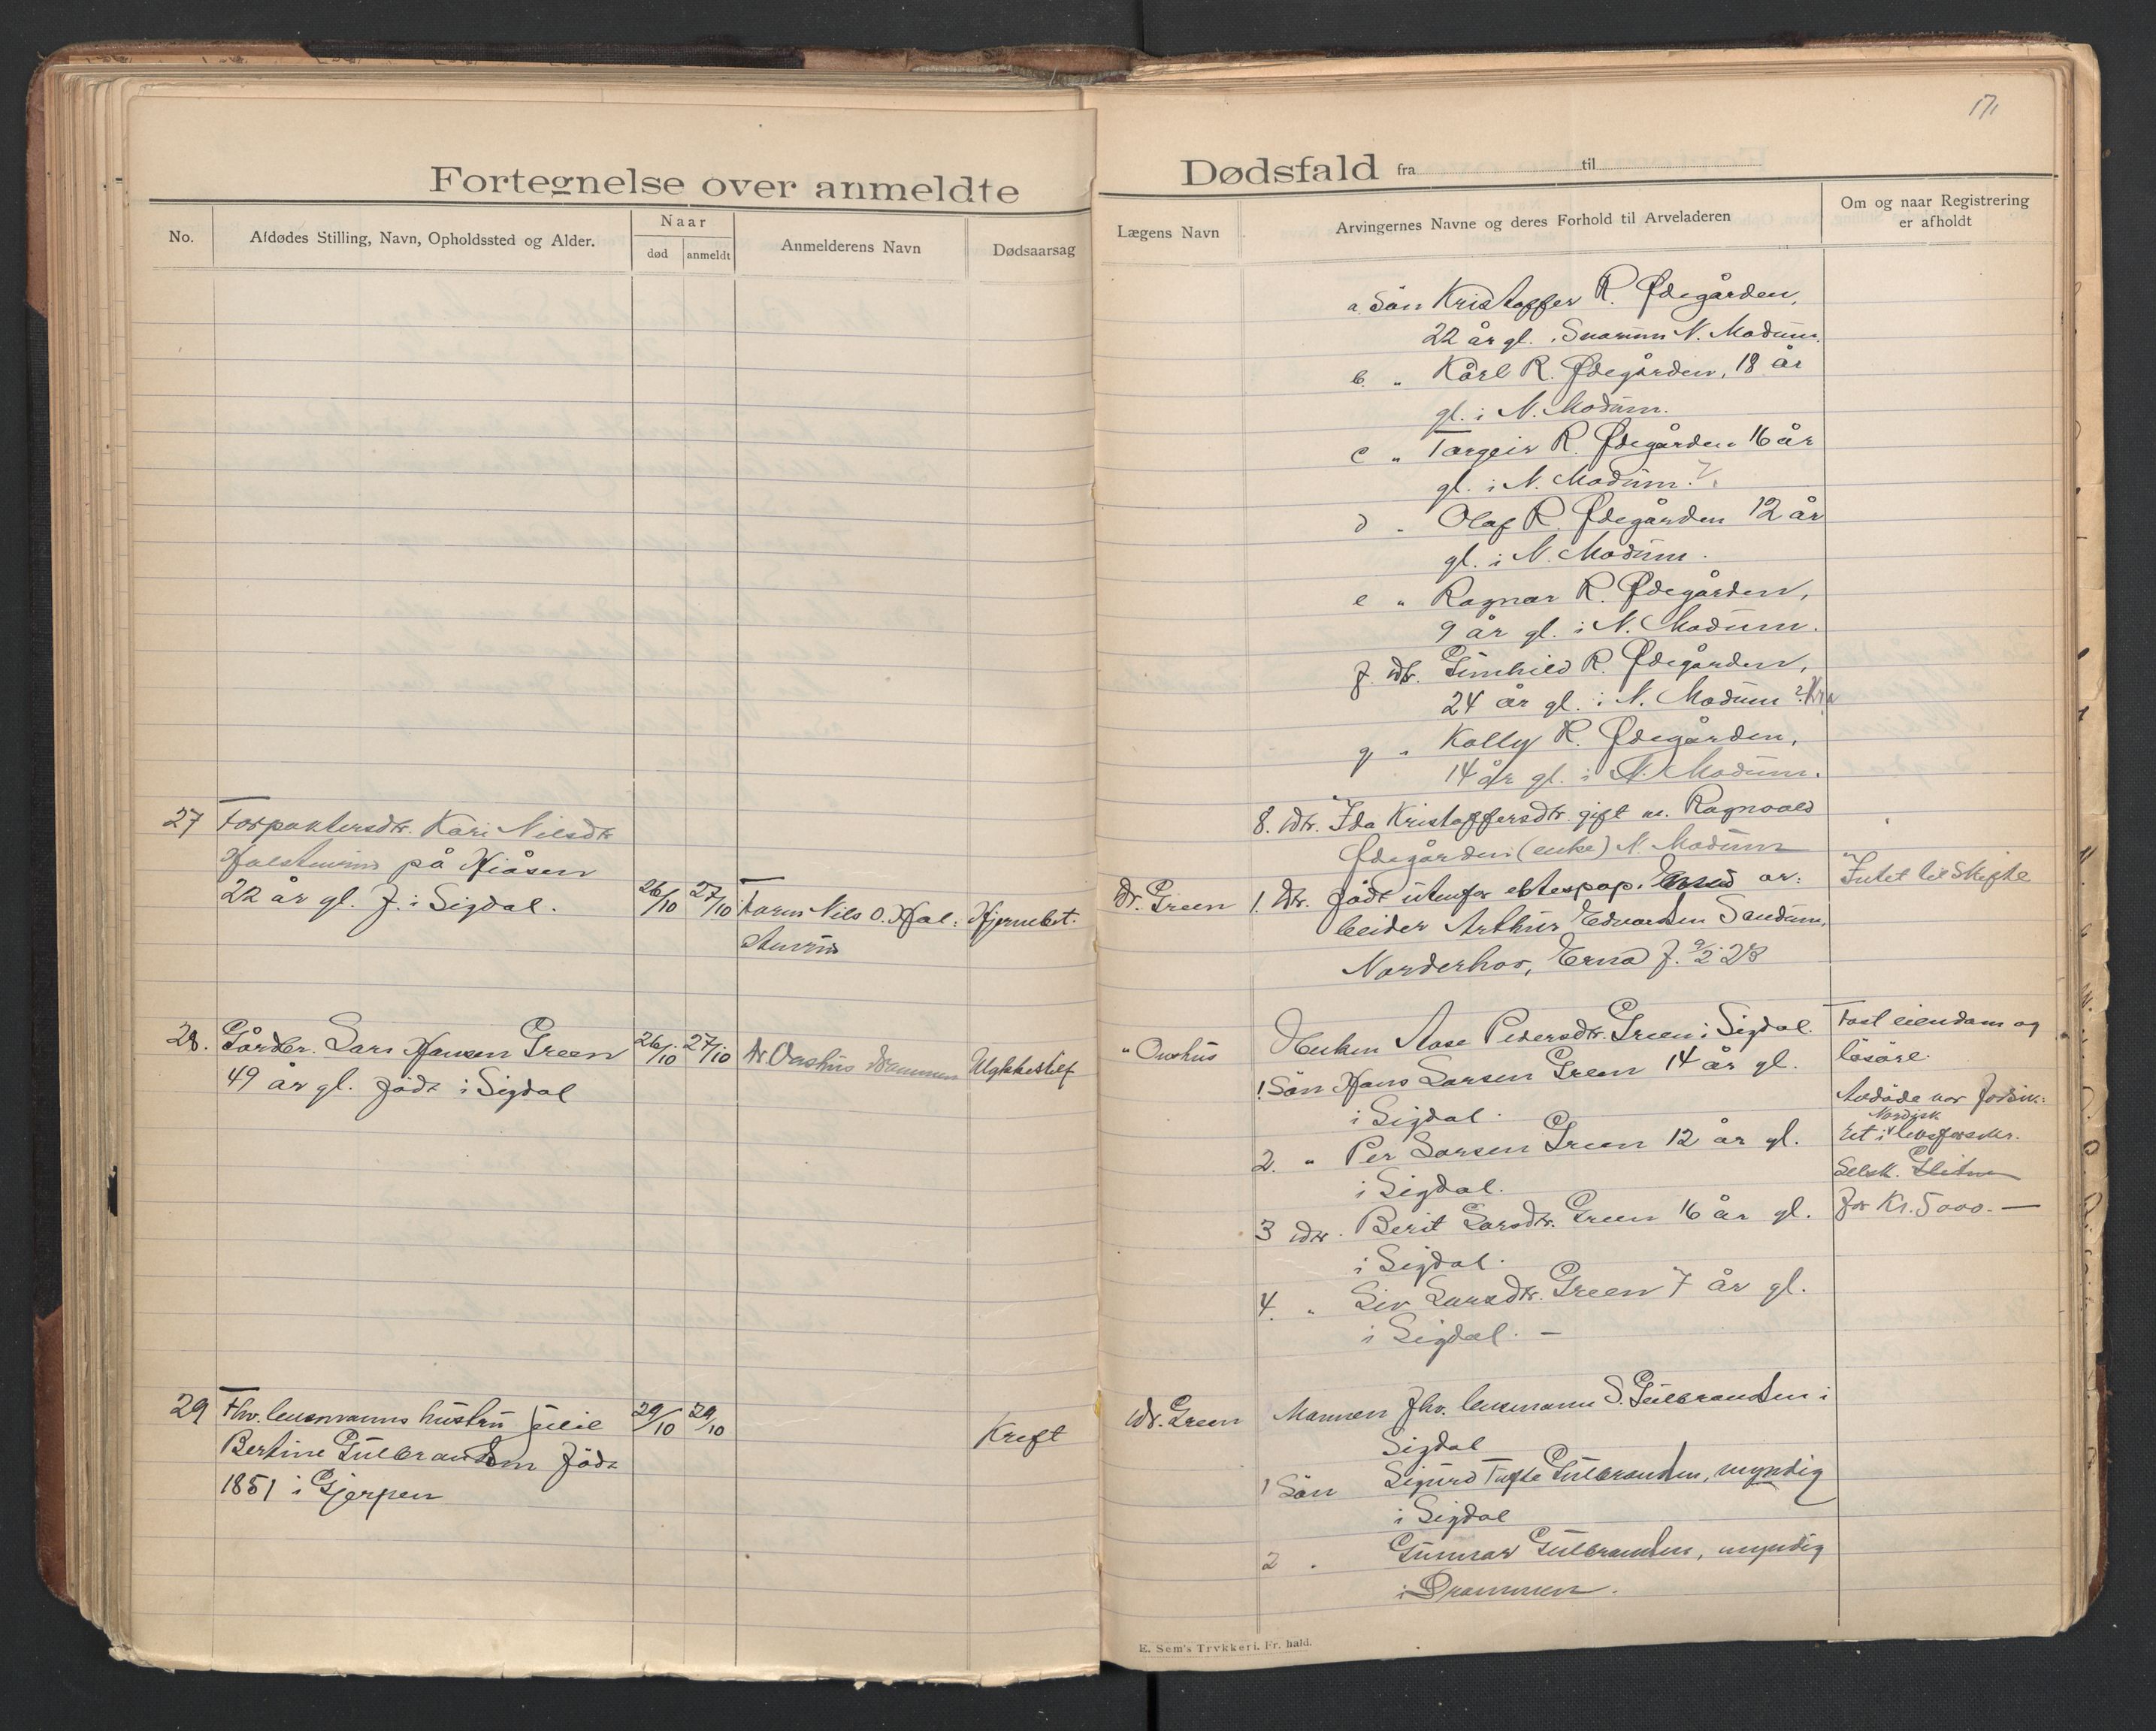 171
Fortegnelse over anmeldte
No.
Afdødes Stilling, Navn, Opholdssted og Alder.
Naar
død
anmeldt
Anmelderens Navn
Dødsaarsag
27 Forpaktersdtr. Kari Nilsdtr
på Hiåsen
22 år gl. f. i Sigdal. 26/10 27/10 Farm Nils O. Hjernebet.
28. Gårdbr. Lars Hansen Green 26/10 27/10 Dr. Onshus Drammen Ulykkestilf
49 år gl. født i Sigdal
29 Fhv. lensmanns hustru Julie 29/10 29/10
Bertine Gulbrandsen født Kreft
1851 i Gjerpen
Dødsfald fra til
Lægens Navn
Arvingernes Navne og deres Forhold til Arveladeren
Om og naar Registrering
er afholdt
a. Søn Kristoffer R. Ødegården,
22 år gl. i Snarum N. Modum.
b. " Kårl R. Ødegården, 18 år
gl. i N. Modum.
c " Torgeir R. Ødegården 16 år
gl. i N. Modum. ?
d " Olaf R. Ødegården 12 år
gl. i N. Modum.
e " Ragnar R. Ødegården,
9 år gl. i N. Modum.
f. dtr. Gunhild R. Ødegården,
24 år gl. i N. Modum ? Kra
g " Kolly R. Ødegården,
14 år gl. i N. Modum.
8. dtr. Ida Kristoffersdtr. gift m. Ragnvald
Ødegården (enke) N. Modum
Dr. Green 1. Dtr. født utenfor ektespap. ar: Intet til Skifte
beider Arthur Edvardsen Sandum,
Norderhov, Erna f. 9/2 28
" Onshus Enken Aase Pedersdtr. Green i Sigdal. Fast eiendom og
1 Søn Hans Larsen Green 14 år gl. løsøre.
i Sigdal. Avdøde var forsik:
Nordisk
2. " Per Larsen Green 12 år gl. ret i livsforsikr.
i Sigdal. Selsk.
3 dtr. Berit Larsdtr. Green 16 år gl. for Kr. 5000.—
i Sigdal.
4. " Liv Larsdtr. Green 7 år gl.
i Sigdal. —
Dr. Green Mannen fhv. lensmann S. Gulbrandsen i
Sigdal
1 Søn Sigurd Tufte Gulbrandsen, myndig
i Sigdal
2 " Gunnar Gulbrandsen, myndig
i Drammen.
E. Sem's Trykkeri. Fr. hald.